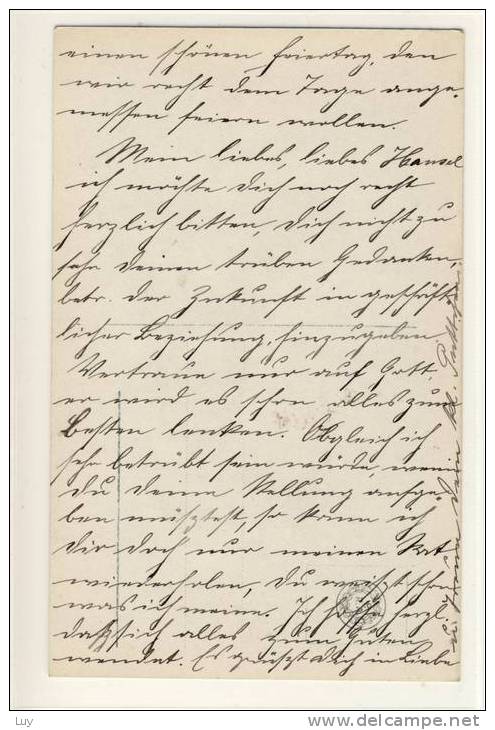 einen schönen Feiertag, den
wir recht dem Tage ange-
messen feiern wollen.
Mein liebes, liebes Hansel
ich möchte Dich noch recht
herzlich bitten, Dich nicht zu
sehr Deinen trüben Gedanken,
betr. der Zukunft in geschäft-
licher Beziehung, hinzugeben
Vertraue nur auf Gott,
er wird es schon alles zum
Besten lenken. Obgleich ich
sehr betrübt sein würde, wenn
Du Deine Stellung aufge-
ben müsstest, so kann ich
Dir doch nur meinen Rat
wiederholen, Du weisst schon
was ich meine. Ich hoffe herzl.
dass sich alles zum Guten
wendet. Es grüsst Dich in Liebe
u. Treue Dein kl.
Luy
www.delcampe.net